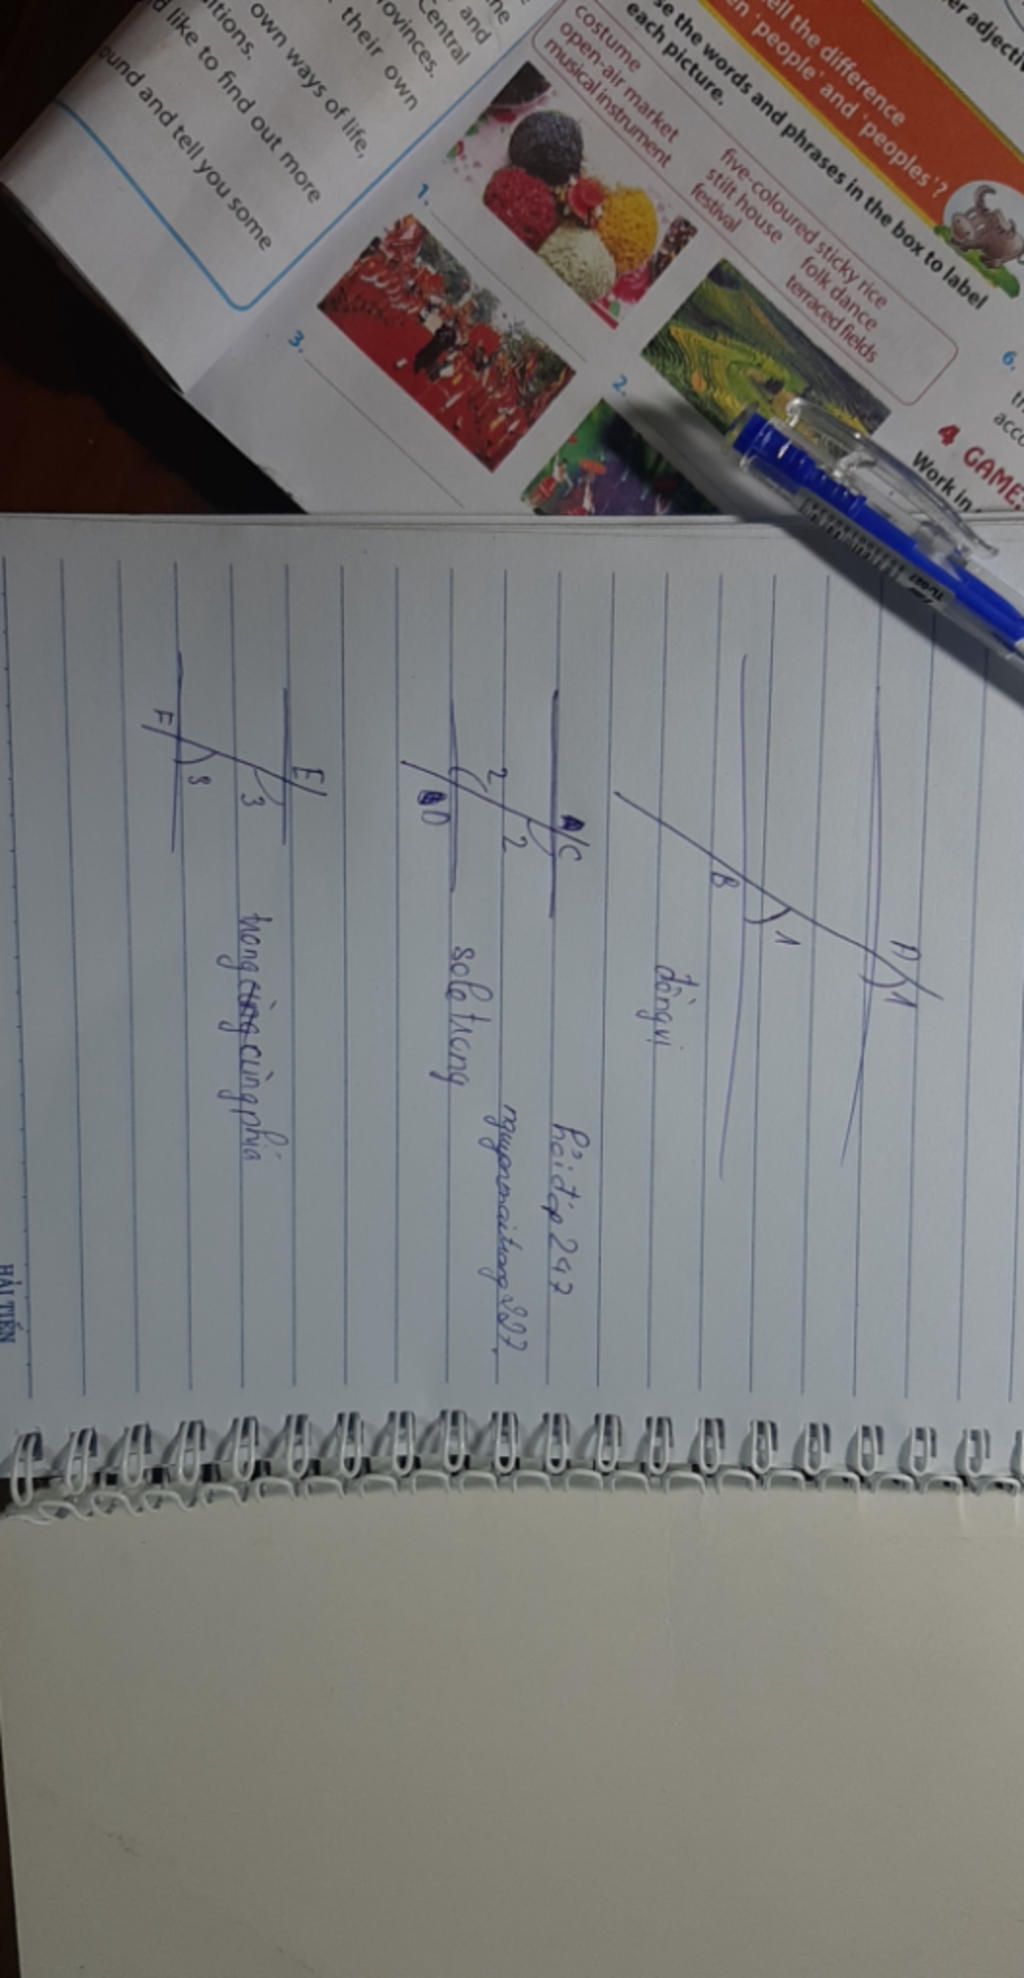 own ways of life,
their own
rovinces.
Central
and
itions.
like to find out more
ound and tell you some
ell the difference
en 'people' and 'peoples'?
se the words and phrases in the box to label
each picture.
costume
open-air market
musical instrument
five-coloured sticky rice
stilt house
festival
folk dance
terraced fields
1.
2.
3.
6.
4 GAME:
Work in
A
1
B
1
đồng vị
C
2
2
D
so le trong
hỏi đáp 247
E
3
F
3
trong cùng cùng phía
HẢI TIẾN